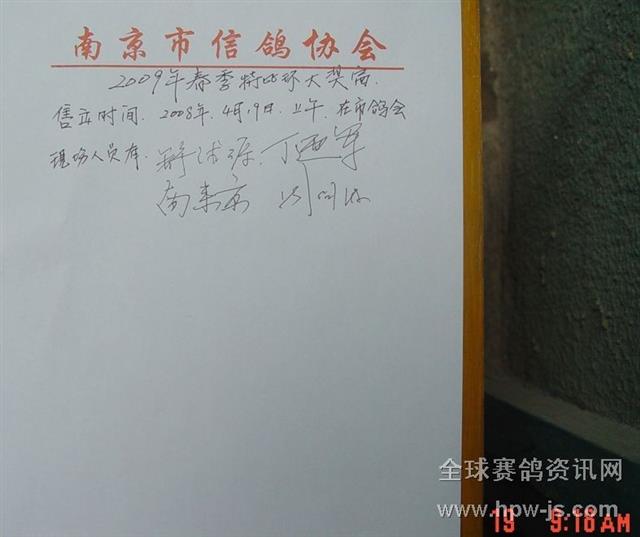 南京市信鸽协会
2009年春季特比环大奖赛.
售立时间. 2008年.4月19日.上午.在市鸽会
现场人员有.
全球赛鸽资讯网
www.hpw-js.com
19 9:18AM